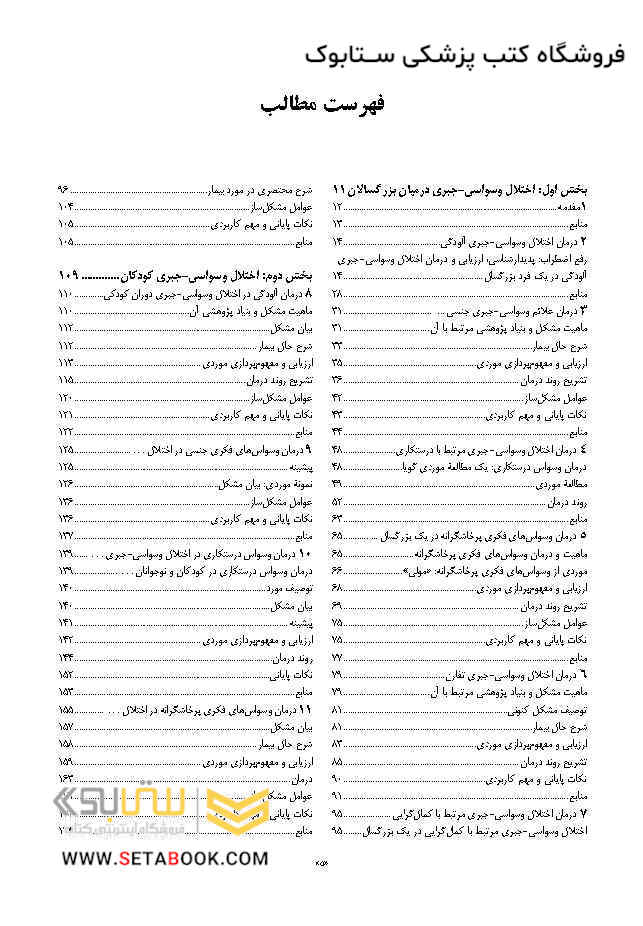 فروشگاه کتب پزشکی ستابوک
فهرست مطالب
بخش اول: اختلال وسواسی-جبری درمیان بزرگسالان ۱۱
۱مقدمه ۱۲
منابع ۱۳
۲ درمان اختلال وسواسی-جبری آلودگی ۱۴
رفع اضطراب: پدیدارشناسی، ارزیابی و درمان اختلال وسواسی-جبری
آلودگی در یک فرد بزرگسال ۱۴
منابع ۲۸
۳ درمان علائم وسواسی-جبری جنسی ۳۱
ماهیت مشکل و بنیاد پژوهشی مرتبط با آن ۳۱
شرح حال بیمار ۳۳
ارزیابی و مفهوم‌پردازی موردی ۳۵
تشریح روند درمان ۳۶
عوامل مشکل‌ساز ۴۲
نکات پایانی و مهم کاربردی ۴۳
منابع ۴۴
۴ درمان اختلال وسواسی-جبری مرتبط با درستکاری ۴۸
درمان وسواس درستکاری: یک مطالعهٔ موردی گویا ۴۸
مطالعهٔ موردی ۴۹
روند درمان ۵۲
منابع ۶۳
۵ درمان وسواس‌های فکری پرخاشگرانه در یک بزرگسال ۶۵
ماهیت و درمان وسواس‌های فکری پرخاشگرانه ۶۵
موردی از وسواس‌های فکری پرخاشگرانه: «مولی» ۶۶
ارزیابی و مفهوم‌پردازی موردی ۶۸
تشریح روند درمان ۶۹
عوامل مشکل‌ساز ۷۵
نکات پایانی و مهم کاربردی ۷۵
منابع ۷۷
۶ درمان اختلال وسواسی-جبری تقارن ۷۹
ماهیت مشکل و بنیاد پژوهشی مرتبط با آن ۷۹
توصیف مشکل کنونی ۸۱
شرح حال بیمار ۸۱
ارزیابی و مفهوم‌پردازی موردی ۸۳
تشریح روند درمان ۸۵
نکات پایانی و مهم کاربردی ۹۰
منابع ۹۱
۷ درمان اختلال وسواسی-جبری مرتبط با کمال‌گرایی ۹۵
اختلال وسواسی-جبری مرتبط با کمال‌گرایی در یک بزرگسال ۹۵
شرح مختصری در مورد بیمار ۹۶
عوامل مشکل‌ساز ۱۰۴
نکات پایانی و مهم کاربردی ۱۰۵
منابع ۱۰۵
بخش دوم: اختلال وسواسی-جبری کودکان ۱۰۹
۸ درمان آلودگی در اختلال وسواسی-جبری دوران کودکی ۱۱۰
ماهیت مشکل و بنیاد پژوهشی آن ۱۱۰
بیان مشکل ۱۱۲
شرح حال بیمار ۱۱۲
ارزیابی و مفهوم‌پردازی موردی ۱۱۳
تشریح روند درمان ۱۱۵
عوامل مشکل‌ساز ۱۲۰
نکات پایانی و مهم کاربردی ۱۲۱
منابع ۱۲۲
۹ درمان وسواس‌های فکری جنسی در اختلال ... ۱۲۵
پیشینه ۱۲۵
نمونهٔ موردی: بیان مشکل ۱۲۶
عوامل مشکل‌ساز ۱۳۶
نکات پایانی و مهم کاربردی ۱۳۶
منابع ۱۳۷
۱۰ درمان وسواس درستکاری در اختلال وسواسی-جبری ... ۱۳۹
درمان وسواس درستکاری در کودکان و نوجوانان ۱۳۹
توصیف مورد ۱۴۰
بیان مشکل ۱۴۰
پیشینه ۱۴۱
ارزیابی و مفهوم‌پردازی موردی ۱۴۲
روند درمان ۱۴۴
نکات پایانی ۱۵۲
منابع ۱۵۳
۱۱ درمان وسواس‌های فکری پرخاشگرانه در اختلال ... ۱۵۵
بیان مشکل ۱۵۷
شرح حال بیمار ۱۵۸
ارزیابی و مفهوم‌پردازی موردی ۱۵۹
درمان ۱۶۳
عوامل مشکل
نکات پایانی و مهم
منابع
ستابوک
فروشگاه اینترنتی کتاب
WWW.SETABOOK.COM